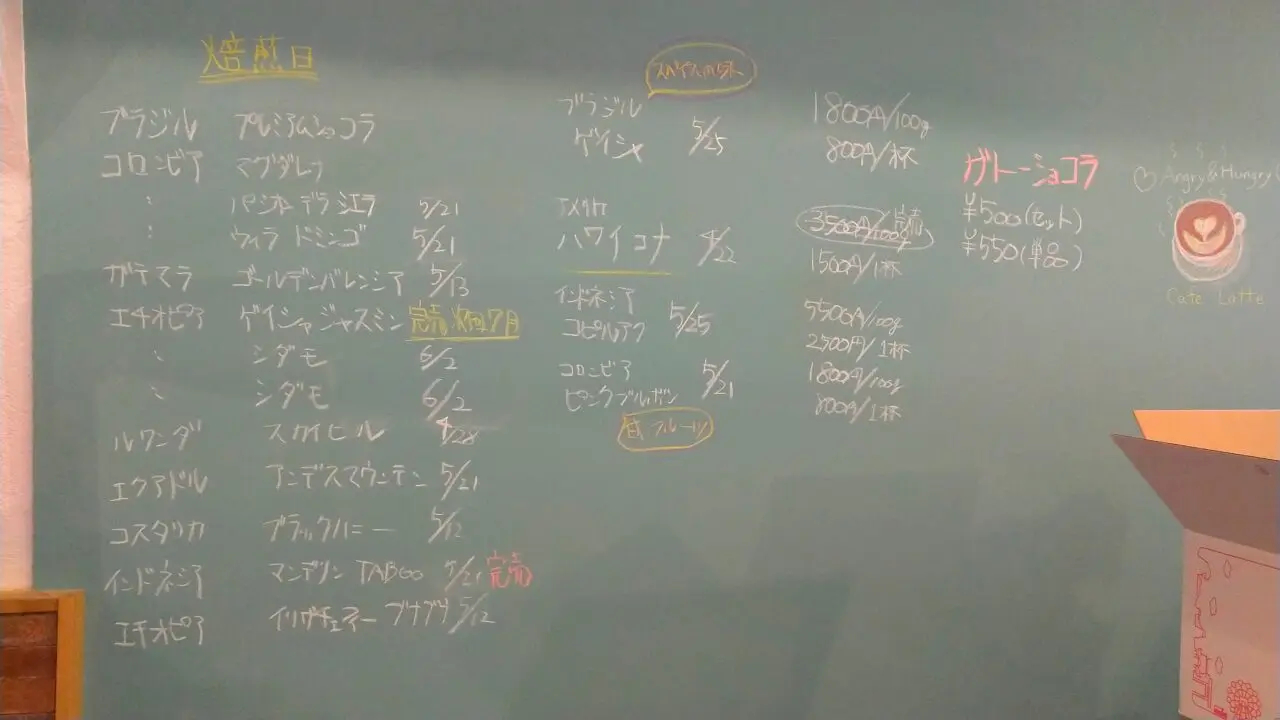 焙煎日
ブラジル プレミアムショコラ
コロンビア マグダレナ
〃 パシオンデラシエラ 5/21
〃 ウィラ ドミンゴ 5/21
ガテマラ ゴールデンバレンシア 5/13
エチオピア ゲイシャジャスミン 完売 次回7月
〃 シダモ 6/2
〃 シダモ 6/2
ルワンダ スカイヒル 4/28
エクアドル アンデスマウンテン 5/21
コスタリカ ブラックハニー 5/12
インドネシア マンデリン TABOO 5/21 完売
エチオピア イルガチェフェー ブナブナ 5/12
ブラジル
ゲイシャ 5/25
1800円/100g
800円/杯
アメリカ
ハワイコナ 4/22
3500円/100g 完売
1500円/1杯
インドネシア
コピルアク 5/25
5500円/100g
2500円/1杯
コロンビア
ピンクブルボン 5/21
1800円/100g
800円/1杯
フルーツ
ガトーショコラ
¥500(セット)
¥550(単品)
Angry&Hungry
Cafe Latte